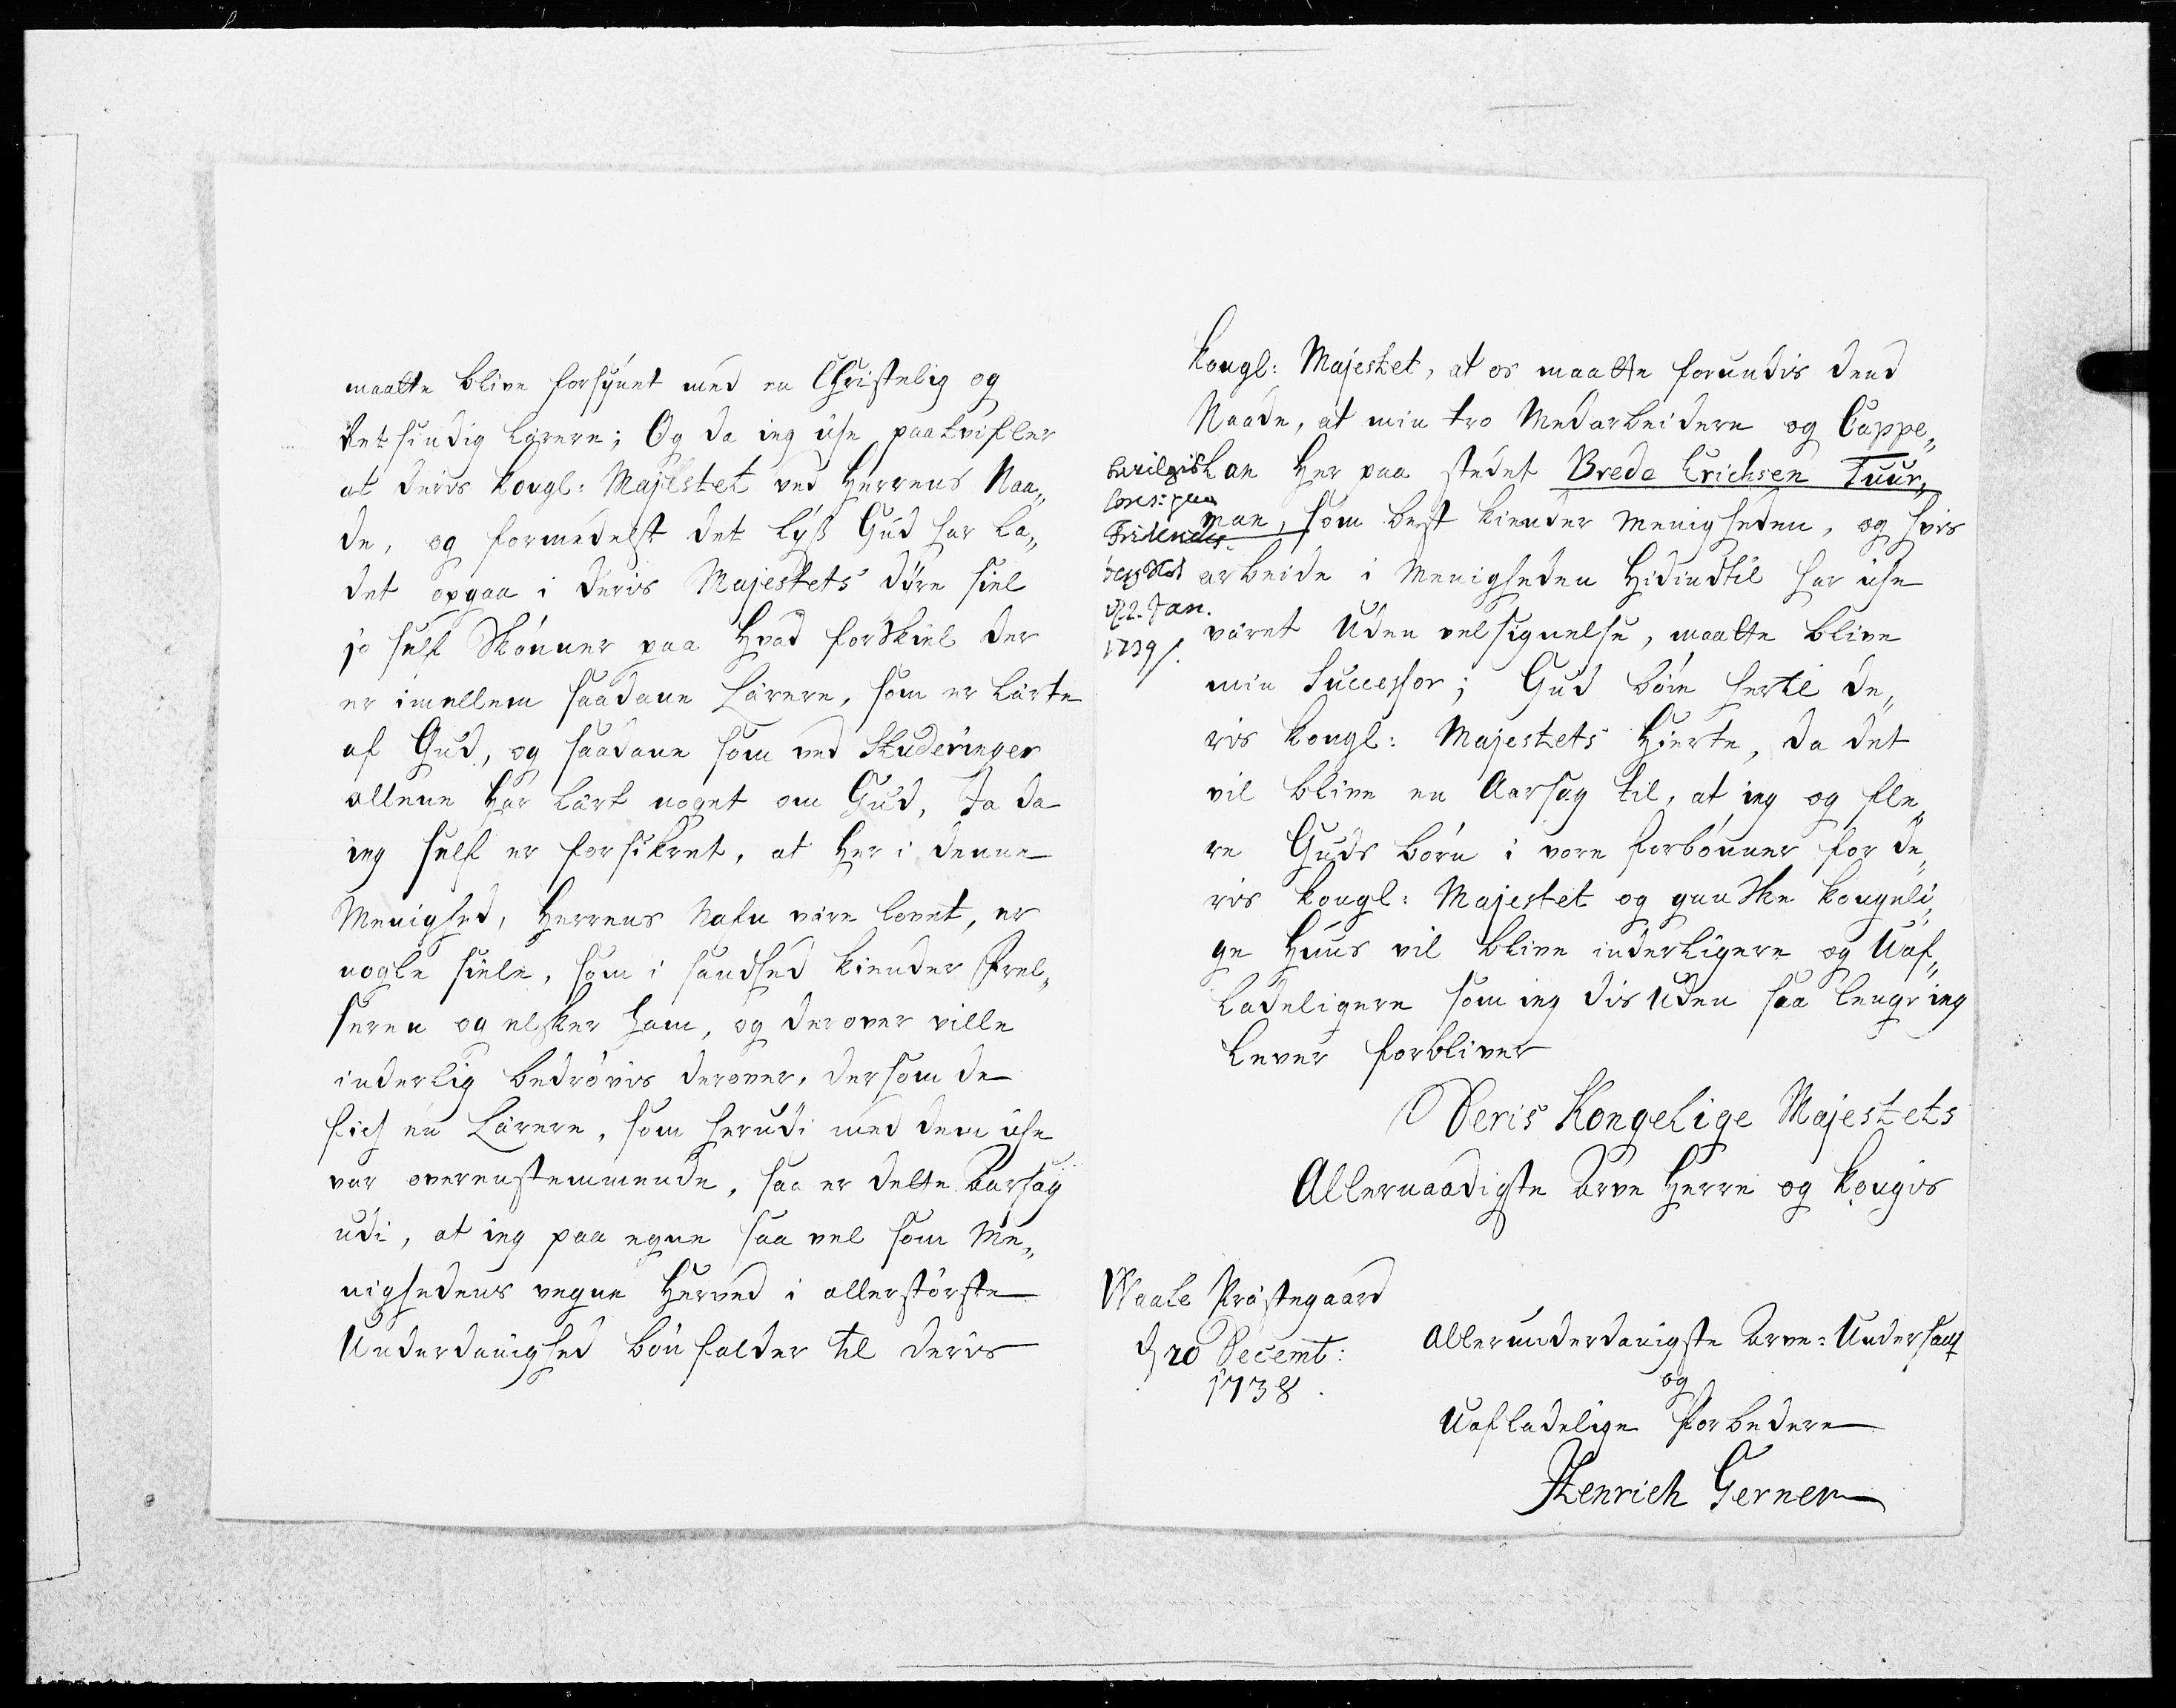 maatte blive forsÿnet med en Christelig og
Retsindig lærere; Og da ieg iche paatvifler
at deris Kongl: Majestet ved Herrens Naa„
de, og formedelst det lyß Gud har la„
det opgaa i deris Majestets dÿre siel
jo self skiönner paa Hvad forskiel der
er imellem saadane Lærere, som er lærte
af Gud, og saadane som ved Studeringer
allene har lært noget om Gud, Ja da
ieg self er forsikret, at her i denne
Menighed, Herrens Nafn være lovet, er
nogle siele, som i sandhed kiender Frel„
seren og elsker ham, og derover ville
inderlig bedrövis derover, dersom de
fich en Lærere, som herudi med dem iche
var overenstemmende, saa er dette Aarsag
udi, at ieg paa egne saa vel som Me„
nighedens vegne Herved i allerstörste
Underdanighed bönfalder til deris
Kongl: Majestet, at os maatte forundis dend
Naade, at min tro Medarbeidere og Cappe„
lan Her paa stedet Brede Erichsen Tuur„
man, som best kiender Menigheden, og hvis
arbeide i Menigheden Hidindtil har iche
været uden velsignelse, maatte blive
min Successor; Gud böie hertil de„
ris Kongl: Majestets Hierte, da det
vil blive en Aarsag til, at ieg og fle„
re Guds börn i vore forbönner for de„
ris Kongl: Majestet og gandske Kongeli„
ge Huus vil blive inderligere og Uaf„
ladeligere som ieg disuden saa lenge ieg
lever forbliver
bevilgis
Fridericks„
d. 2. Jan.
1739/.
Deris Kongelige Majestets
Allernaadigste Arve Herre og Kongis
Waale Præstegaard
d 20 Decemb:
1738.
allerunderdanigste Arve-Undersaat
og
Uafladelige Forbedere
Henrich Gerner